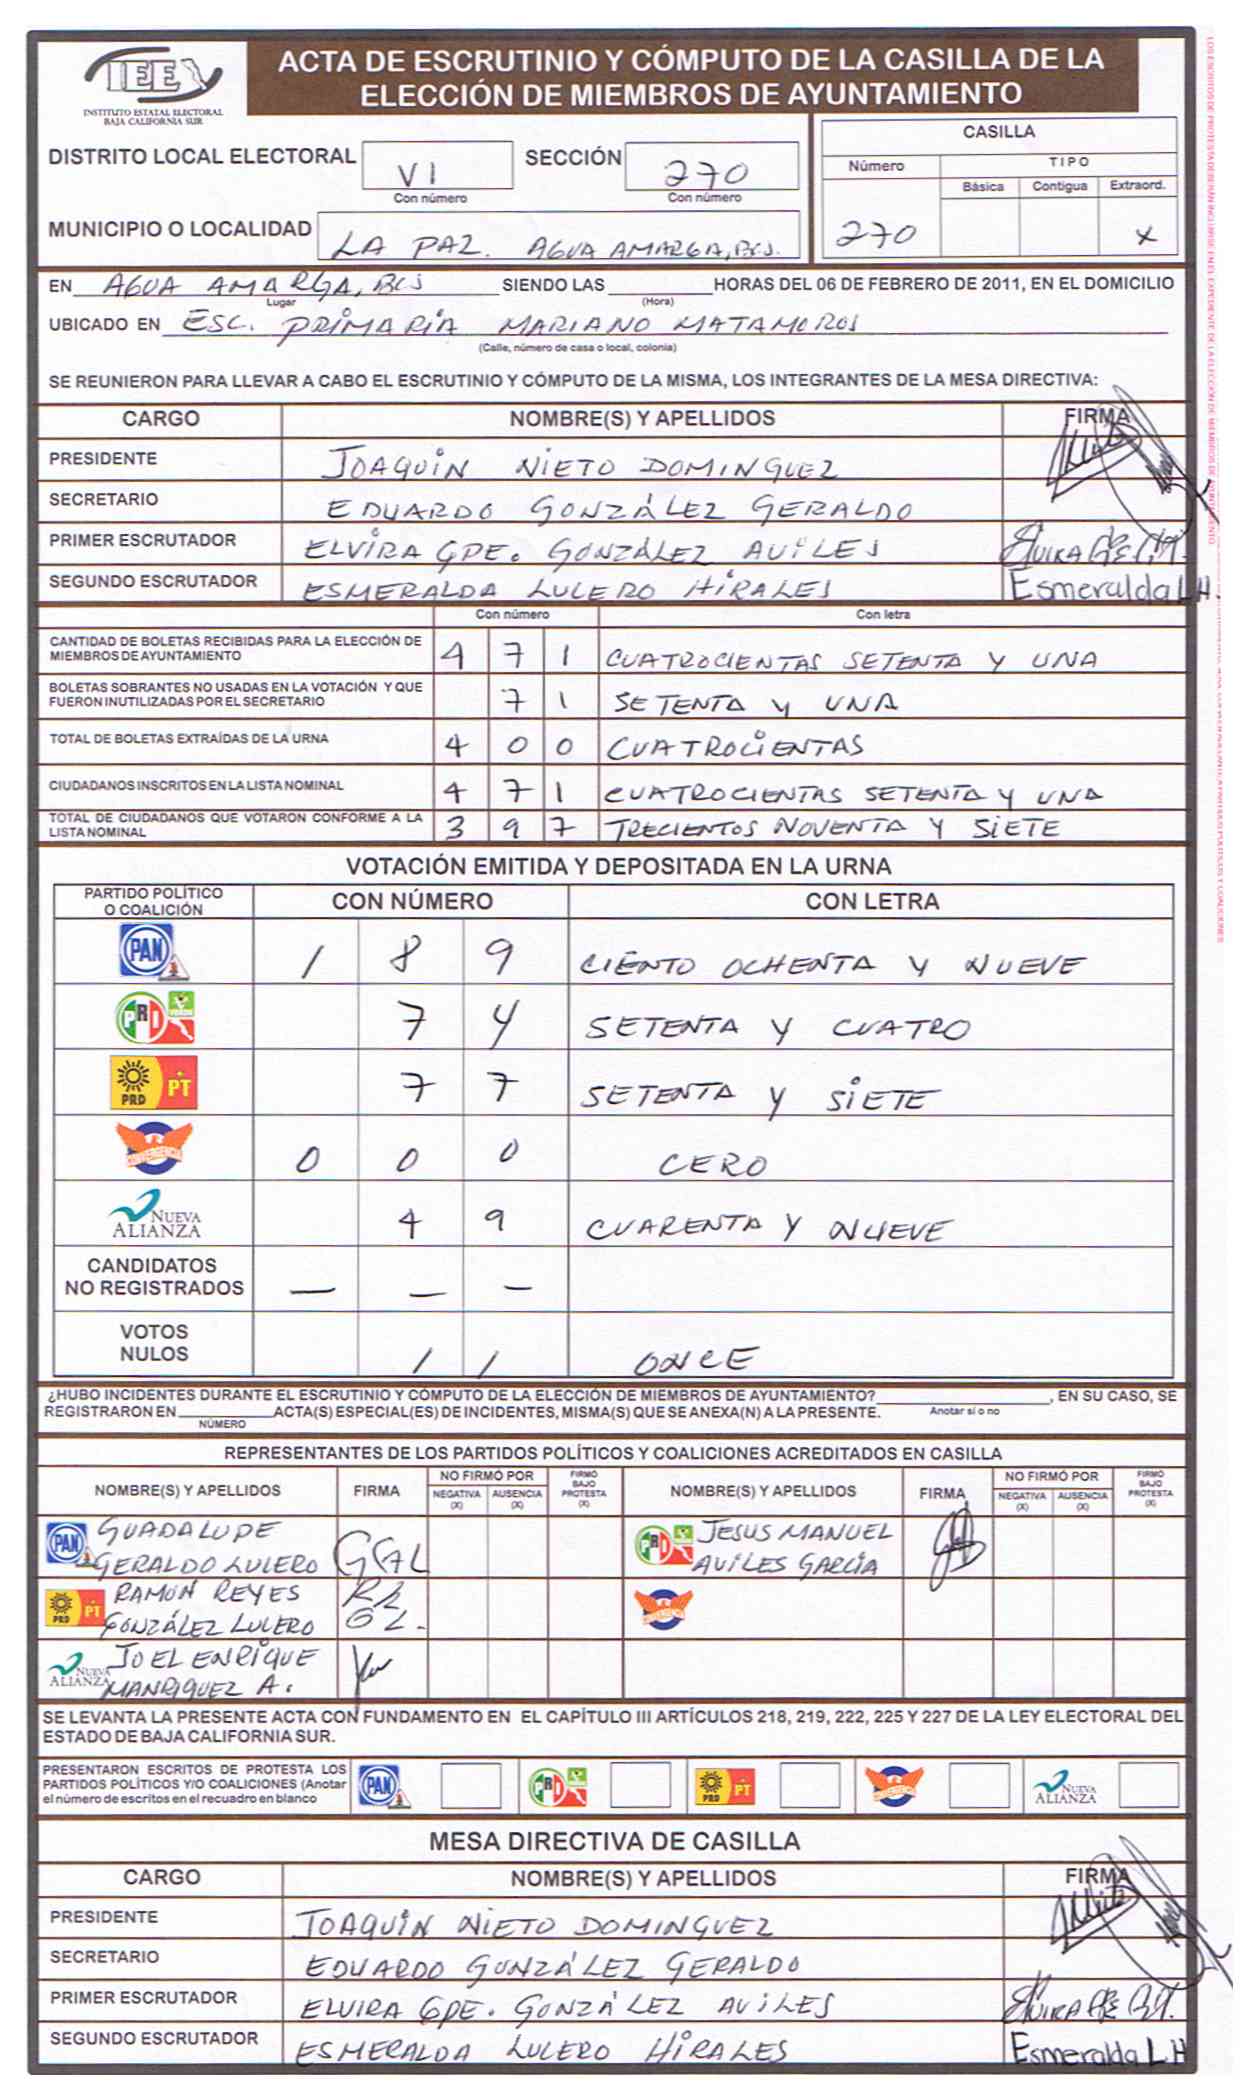 IEE
INSTITUTO ESTATAL ELECTORAL
BAJA CALIFORNIA SUR
ACTA DE ESCRUTINIO Y CÓMPUTO DE LA CASILLA DE LA
ELECCIÓN DE MIEMBROS DE AYUNTAMIENTO
DISTRITO LOCAL ELECTORAL VI SECCIÓN 270
Con número Con número
CASILLA
Número TIPO
Básica Contigua Extraord.
270 X
MUNICIPIO O LOCALIDAD LA PAZ. AGUA AMARGA, BCS.
EN AGUA AMARGA, BCS SIENDO LAS HORAS DEL 06 DE FEBRERO DE 2011, EN EL DOMICILIO
Lugar (Hora)
UBICADO EN ESC. PRIMARIA MARIANO MATAMOROS
(Calle, número de casa o local, colonia)
SE REUNIERON PARA LLEVAR A CABO EL ESCRUTINIO Y CÓMPUTO DE LA MISMA, LOS INTEGRANTES DE LA MESA DIRECTIVA:
CARGO NOMBRE(S) Y APELLIDOS FIRMA
PRESIDENTE JOAQUIN NIETO DOMINGUEZ
SECRETARIO EDUARDO GONZÁLEZ GERALDO
PRIMER ESCRUTADOR ELVIRA GPE. GONZÁLEZ AVILES
SEGUNDO ESCRUTADOR ESMERALDA LUCERO HIRALES Esmeralda L H.
Con número Con letra
CANTIDAD DE BOLETAS RECIBIDAS PARA LA ELECCIÓN DE
MIEMBROS DE AYUNTAMIENTO 4 7 1 CUATROCIENTAS SETENTA Y UNA
BOLETAS SOBRANTES NO USADAS EN LA VOTACIÓN Y QUE
FUERON INUTILIZADAS POR EL SECRETARIO 7 1 SETENTA Y UNA
TOTAL DE BOLETAS EXTRAÍDAS DE LA URNA 4 0 0 CUATROCIENTAS
CIUDADANOS INSCRITOS EN LA LISTA NOMINAL 4 7 1 CUATROCIENTAS SETENTA Y UNA
TOTAL DE CIUDADANOS QUE VOTARON CONFORME A LA
LISTA NOMINAL 3 9 7 TRECIENTOS NOVENTA Y SIETE
VOTACIÓN EMITIDA Y DEPOSITADA EN LA URNA
PARTIDO POLÍTICO
O COALICIÓN CON NÚMERO CON LETRA
PAN 1 8 9 CIENTO OCHENTA Y NUEVE
PRI VERDE 7 4 SETENTA Y CUATRO
PRD PT 7 7 SETENTA Y SIETE
CONVERGENCIA 0 0 0 CERO
NUEVA ALIANZA 4 9 CUARENTA Y NUEVE
CANDIDATOS
NO REGISTRADOS — — —
VOTOS
NULOS 1 1 ONCE
¿HUBO INCIDENTES DURANTE EL ESCRUTINIO Y CÓMPUTO DE LA ELECCIÓN DE MIEMBROS DE AYUNTAMIENTO? , EN SU CASO, SE
REGISTRARON EN ACTA(S) ESPECIAL(ES) DE INCIDENTES, MISMA(S) QUE SE ANEXA(N) A LA PRESENTE. Anotar sí o no
NÚMERO
REPRESENTANTES DE LOS PARTIDOS POLÍTICOS Y COALICIONES ACREDITADOS EN CASILLA
NOMBRE(S) Y APELLIDOS FIRMA NO FIRMÓ POR NEGATIVA (X) AUSENCIA (X) FIRMÓ BAJO PROTESTA (X) NOMBRE(S) Y APELLIDOS FIRMA NO FIRMÓ POR NEGATIVA (X) AUSENCIA (X) FIRMÓ BAJO PROTESTA (X)
PAN GUADALUPE
GERALDO LUCERO GGL
PRI JESUS MANUEL
AVILES GARCÍA
PRD PT RAMON REYES
GONZÁLEZ LUCERO R R G L.
CONVERGENCIA
NUEVA ALIANZA JOEL ENRIQUE
MANRIQUEZ A.
SE LEVANTA LA PRESENTE ACTA CON FUNDAMENTO EN EL CAPÍTULO III ARTÍCULOS 218, 219, 222, 225 Y 227 DE LA LEY ELECTORAL DEL
ESTADO DE BAJA CALIFORNIA SUR.
PRESENTARON ESCRITOS DE PROTESTA LOS
PARTIDOS POLÍTICOS Y/O COALICIONES (Anotar
el número de escritos en el recuadro en blanco
PAN PRI PRD PT CONVERGENCIA NUEVA ALIANZA
MESA DIRECTIVA DE CASILLA
CARGO NOMBRE(S) Y APELLIDOS FIRMA
PRESIDENTE JOAQUÍN NIETO DOMINGUEZ
SECRETARIO EDUARDO GONZÁLEZ GERALDO
PRIMER ESCRUTADOR ELVIRA GPE. GONZÁLEZ AVILES
SEGUNDO ESCRUTADOR ESMERALDA LUCERO HIRALES Esmeralda L H